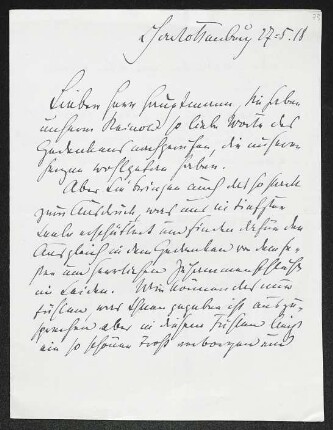 Charlottenburg 27.5.18
Lieber Herr Hauptmann, Sie haben
unserem Reinold so liebe Worte des
Gedenkens nachgerufen, die unseren
Herzen wohlgethan haben.
Aber Sie bringen auch das so stark
zum Ausdruck, was uns in tiefster
Seele erschüttert und finden dafür den
Ausgleich in dem Gedanken von dem
und herrlichen
im Leiden. Wir können das nur
fühlen, was Ihnen gegeben ist auszu-
sprechen aber in diesem Fühlen liegt
ein so schöner Trost verborgen und